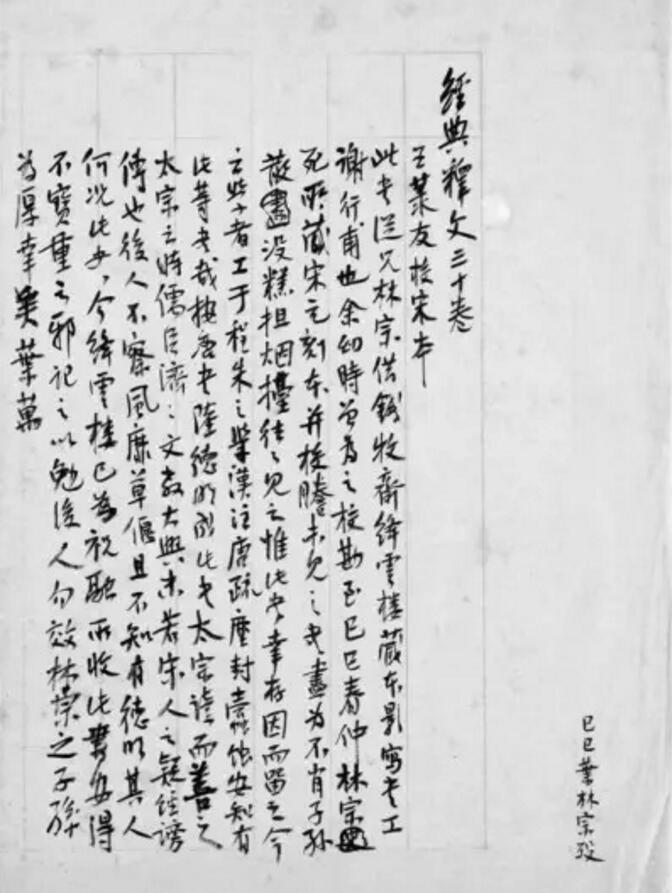 己巳葉林宗歿
經典釋文三十卷
王菉友校宋本
此书從兄林宗借錢牧齋絳雲樓藏本影寫书工
謝行甫也余幼時曾為之校勘至己巳春仲林宗
死所藏宋元刻本并校謄未見之书盡為不肖子孫
散没糕担烟擡往〻見之惟此书幸存因而留之今
之學者工于程朱之學漢注唐疏塵封蠹蝕安知有
此等书哉按唐书陸德明成此书太宗讀而善之
太宗之時儒臣濟〻文教大興未若宋人之疑經謗
傳也後人不察風靡草偃且不知有德明其人
何况此书今絳雲樓已為祝融所收此書安得
不寶重之邪記之以勉後人勿效林宗之子孫
為厚幸矣葉萬